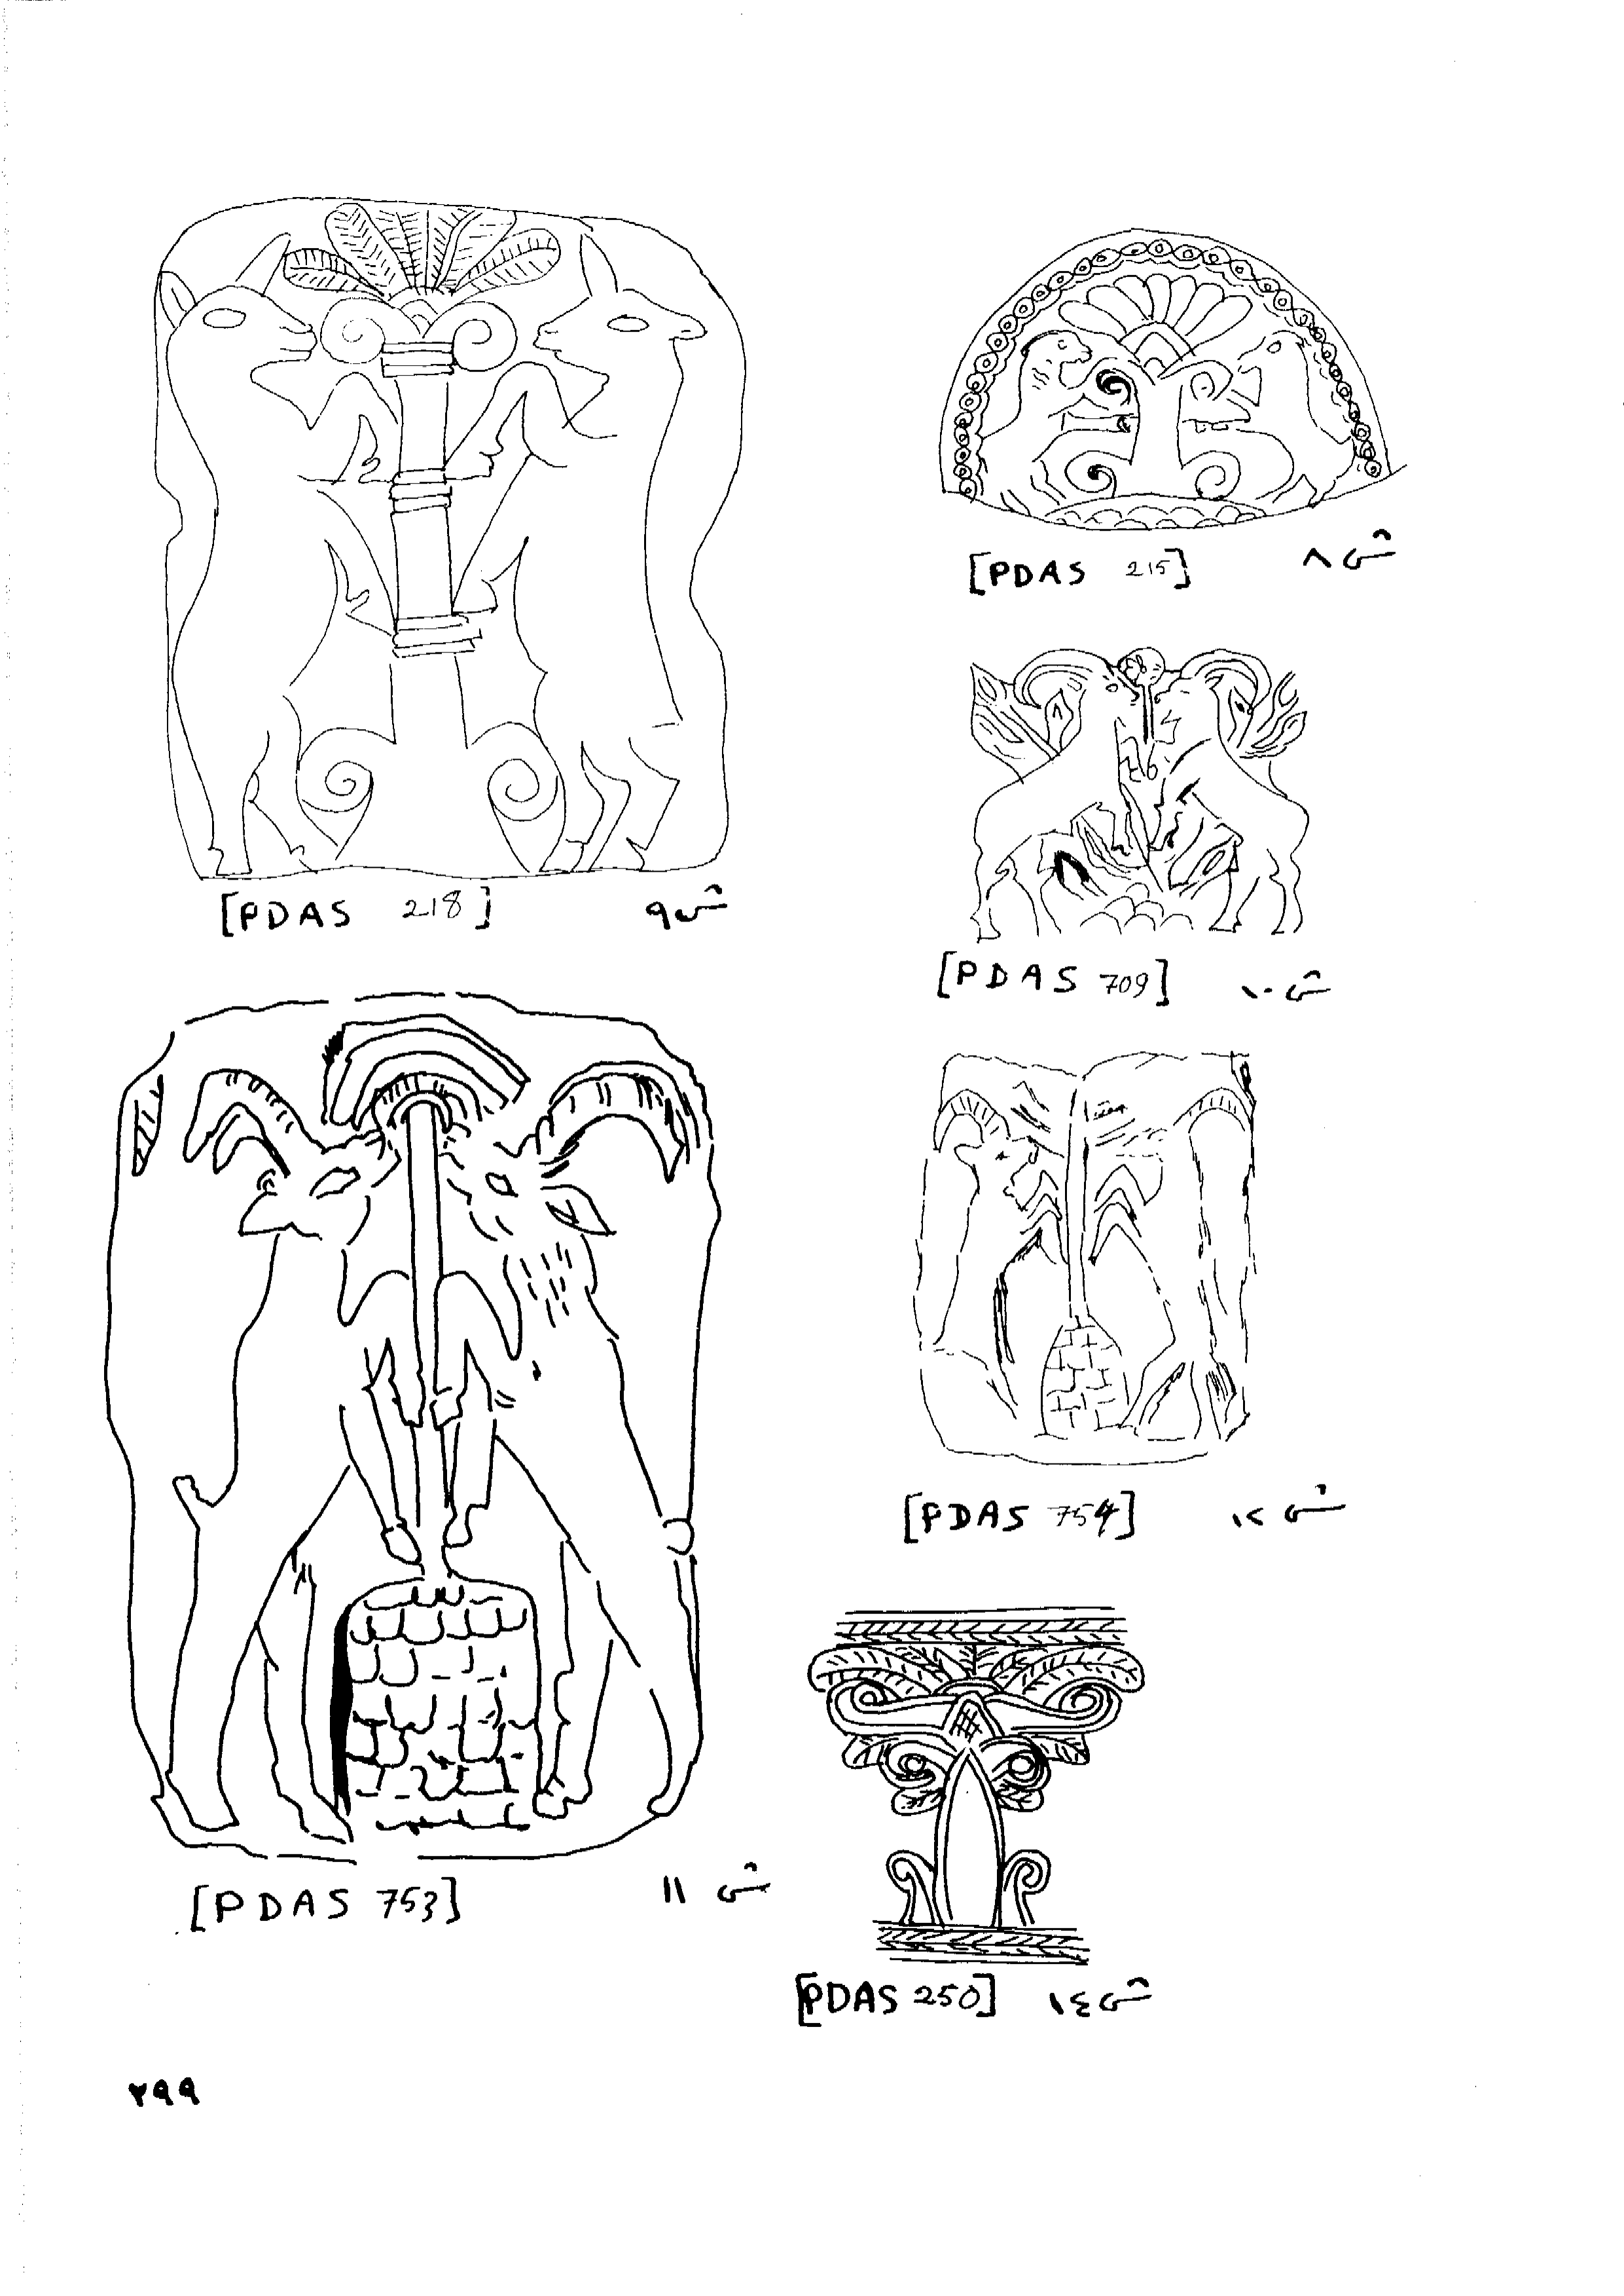 [PDAS 215] ش ٨
[PDAS 218] ش ٩
[PDAS 709] ش ١٠
[PDAS 754] ش ١٢
[PDAS 753] ش ١١
[PDAS 250] ش ١٤
٢٩٩